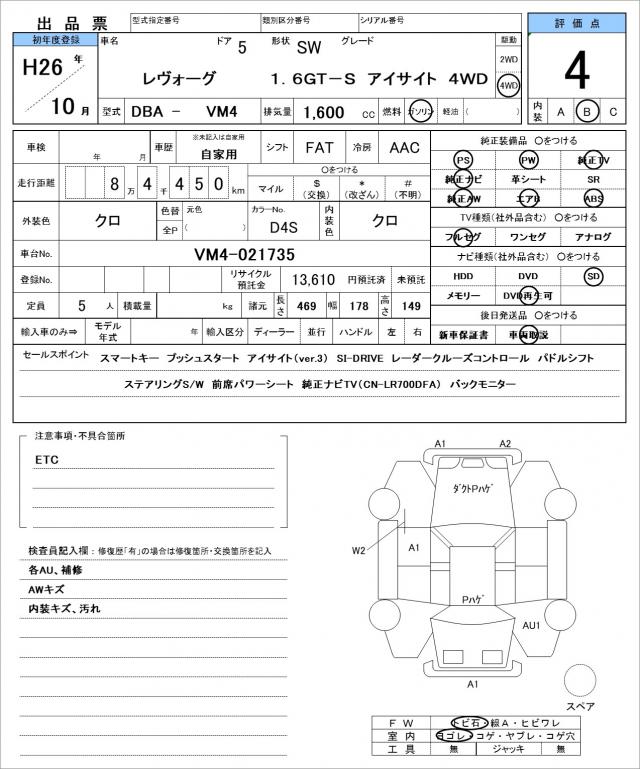 出品票 型式指定番号 類別区分番号 シリアル番号 評価点
初年度登録 車名 ドア 5 形状 SW グレード 駆動
H26 年 レヴォーグ 1.6GT-S アイサイト 4WD 2WD 4
4WD
10 月 型式 DBA - VM4 排気量 1,600 cc 燃料 ガソリン ・ 軽油 ( ) 内装 A B C
車検 年 月 車歴 ※未記入は自家用 自家用 シフト FAT 冷房 AAC 純正装備品 〇をつける
PS PW 純正TV
走行距離 8 万 4 千 4 5 0 km 〇をつける マイル $ (交換) * (改ざん) # (不明) 純正ナビ 革シート SR
純正AW エアB ABS
外装色 クロ 色替 元色 全P ( ) カラーNo. D4S 内装色 クロ TV種類(社外品含む) 〇をつける
フルセグ ワンセグ アナログ
車台No. VM4-021735 ナビ種類(社外品含む) 〇をつける
登録No. リサイクル預託金 13,610 円預託済 未預託 HDD DVD SD
メモリー DVD再生可
定員 5 人 積載量 kg 諸元 長さ 469 幅 178 高さ 149 後日発送品 〇をつける
輸入車のみ⇒ モデル年式 年 輸入区分 ディーラー 並行 ハンドル 左 右 新車保証書 車両取説
セールスポイント スマートキー プッシュスタート アイサイト(ver.3) SI-DRIVE レーダークルーズコントロール パドルシフト
ステアリングS/W 前席パワーシート 純正ナビTV(CN-LR700DFA) バックモニター
注意事項・不具合箇所
ETC
検査員記入欄:修復歴「有」の場合は修復箇所・交換箇所を記入
各AU、補修
AWキズ
内装キズ、汚れ
A1 A2
ダクトPハゲ
W2 A1
Pハゲ
AU1
A1
スペア
FW トビ石・線A・ヒビワレ
室内 ヨゴレ・コゲ・ヤブレ・コゲ穴
工具 無 ジャッキ 無